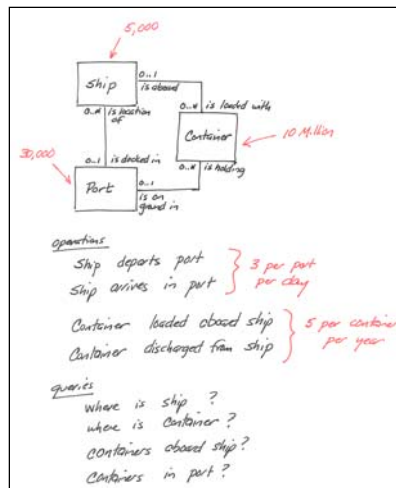 5,000
Ship
0..1
is aboard
0..* is location of
0..* is loaded with
Container
10 Million
30,000
0..1 is docked in
0..* is holding
Port
0..1
is on ground in
operations
Ship departs port
Ship arrives in port
3 per port per day
Container loaded aboard ship
Container discharged from ship
5 per container per year
queries
where is ship ?
where is container ?
containers aboard ship?
containers in port ?